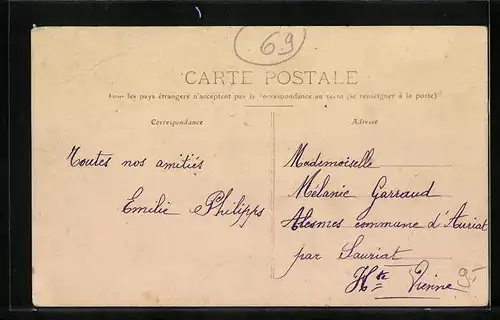 69
CARTE POSTALE
Tous les pays étrangers n'acceptent pas la correspondance au recto (se renseigner à la poste)
Correspondance
Adresse
Toutes nos amitiés
Emilie Philipps
Mademoiselle
Mélanie Garraud
Alesmes commune d'Auriat
par Sauriat
Hte Vienne
9-